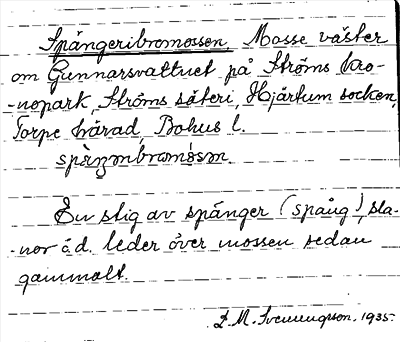 Spångeribromossen. Mosse väster
om Gunnarsvattnet på Ströms kro-
-nopark, Ströms säteri, Hjärtum socken,
Torpe härad, Bohus l.

En stig av spånger (spång), sla-
-nor o.d. leder över mossen sedan
gammalt.
D. M. Svenungsson. 1935.